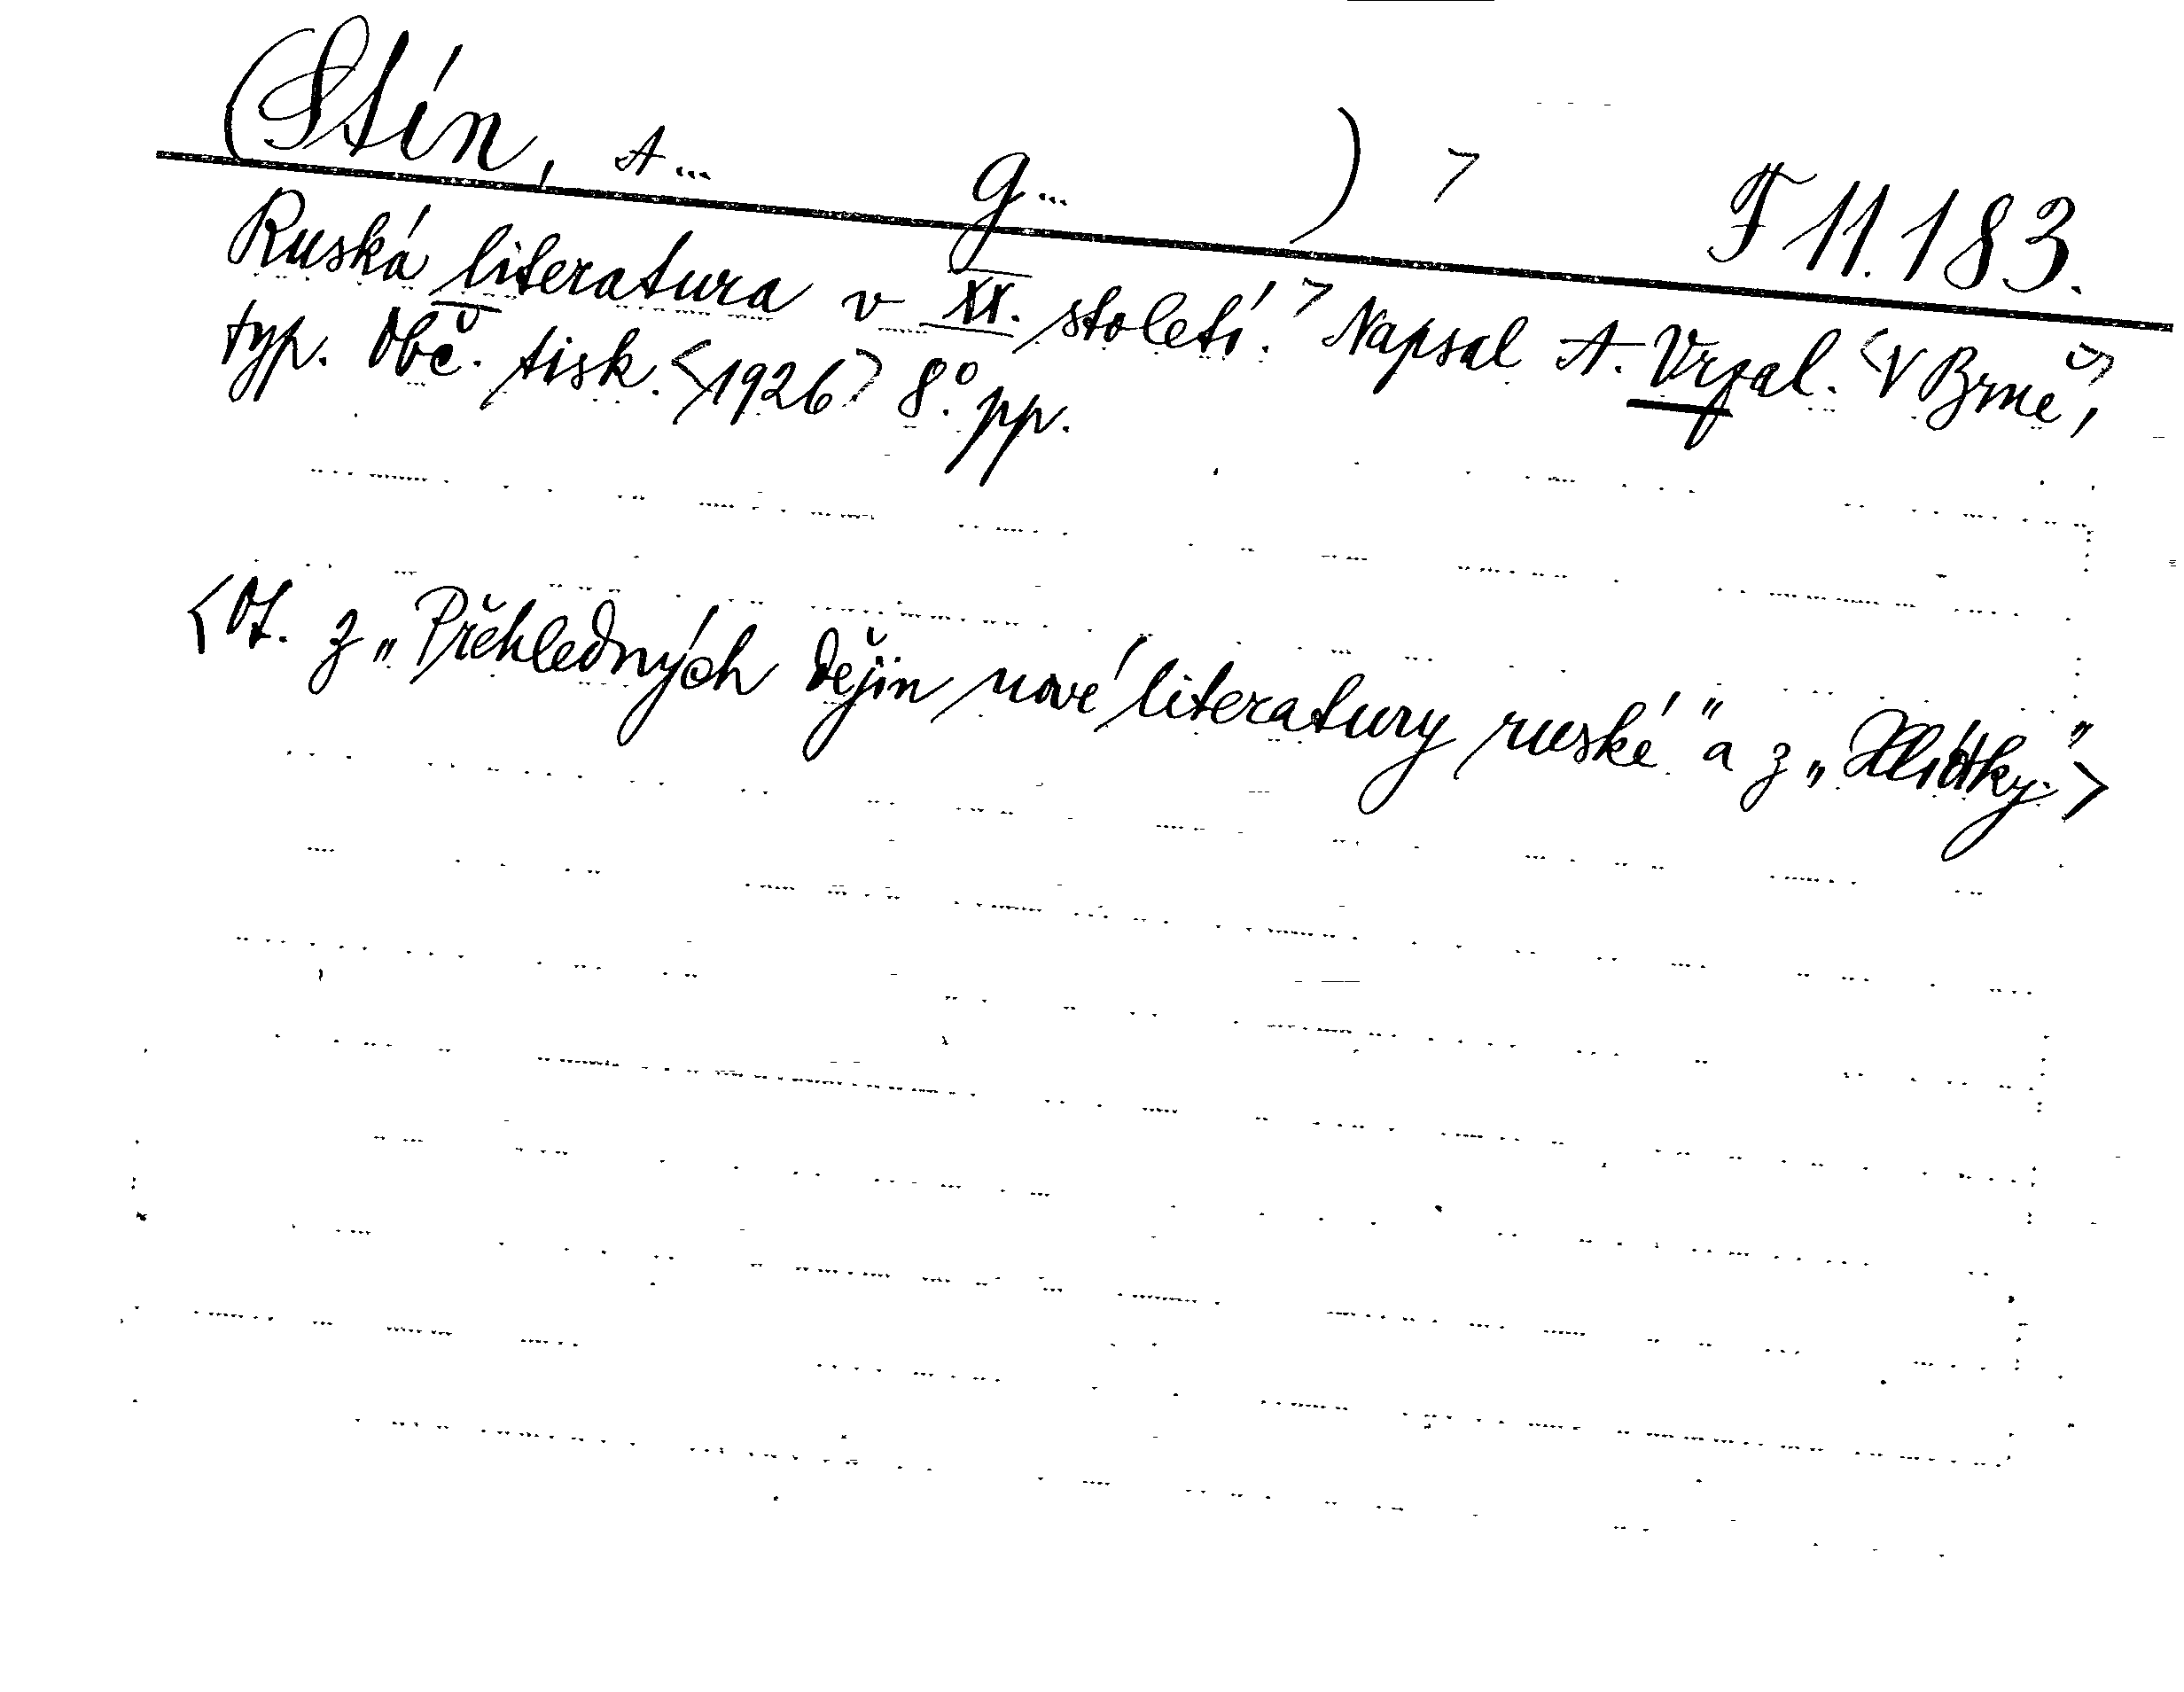 (Stín, A... G... ) > F 11.183.
Ruská literatura v XX. století.> Napsal A. Vrzal. <V Brně,>
typ. Obč. tisk. <1926> 8.° pp.
<Ot. z „Přehledných dějin nové literatury ruské." a z „Hlídky.">